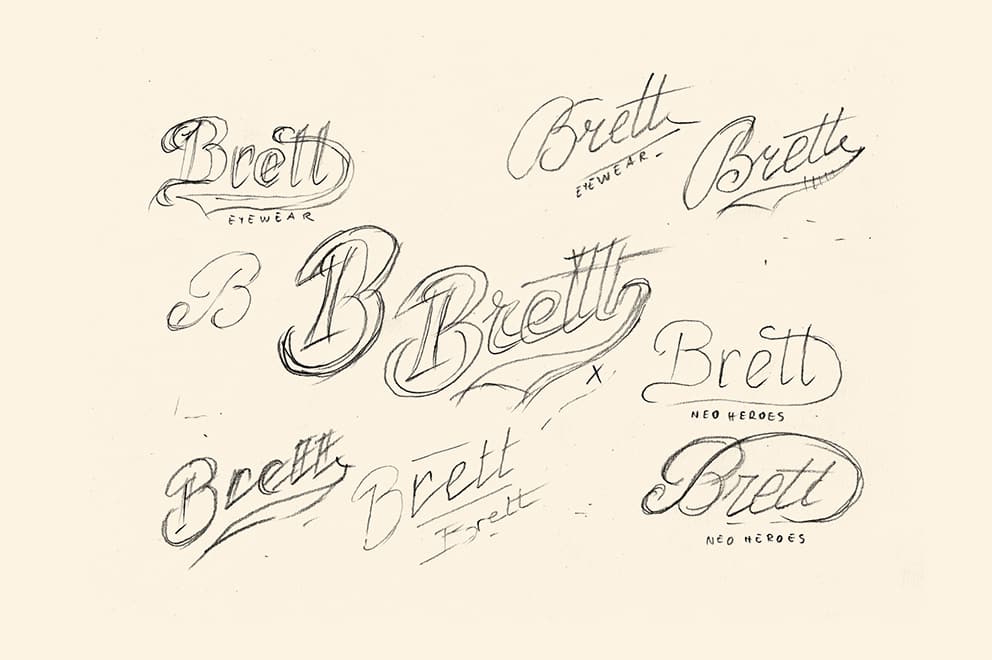 Brett
EYEWEAR
Brett
EYEWEAR
Brett
B
B
Brett
X
Brett
NEO HEROES
Brett
Brett
Brett
Brett
NEO HEROES